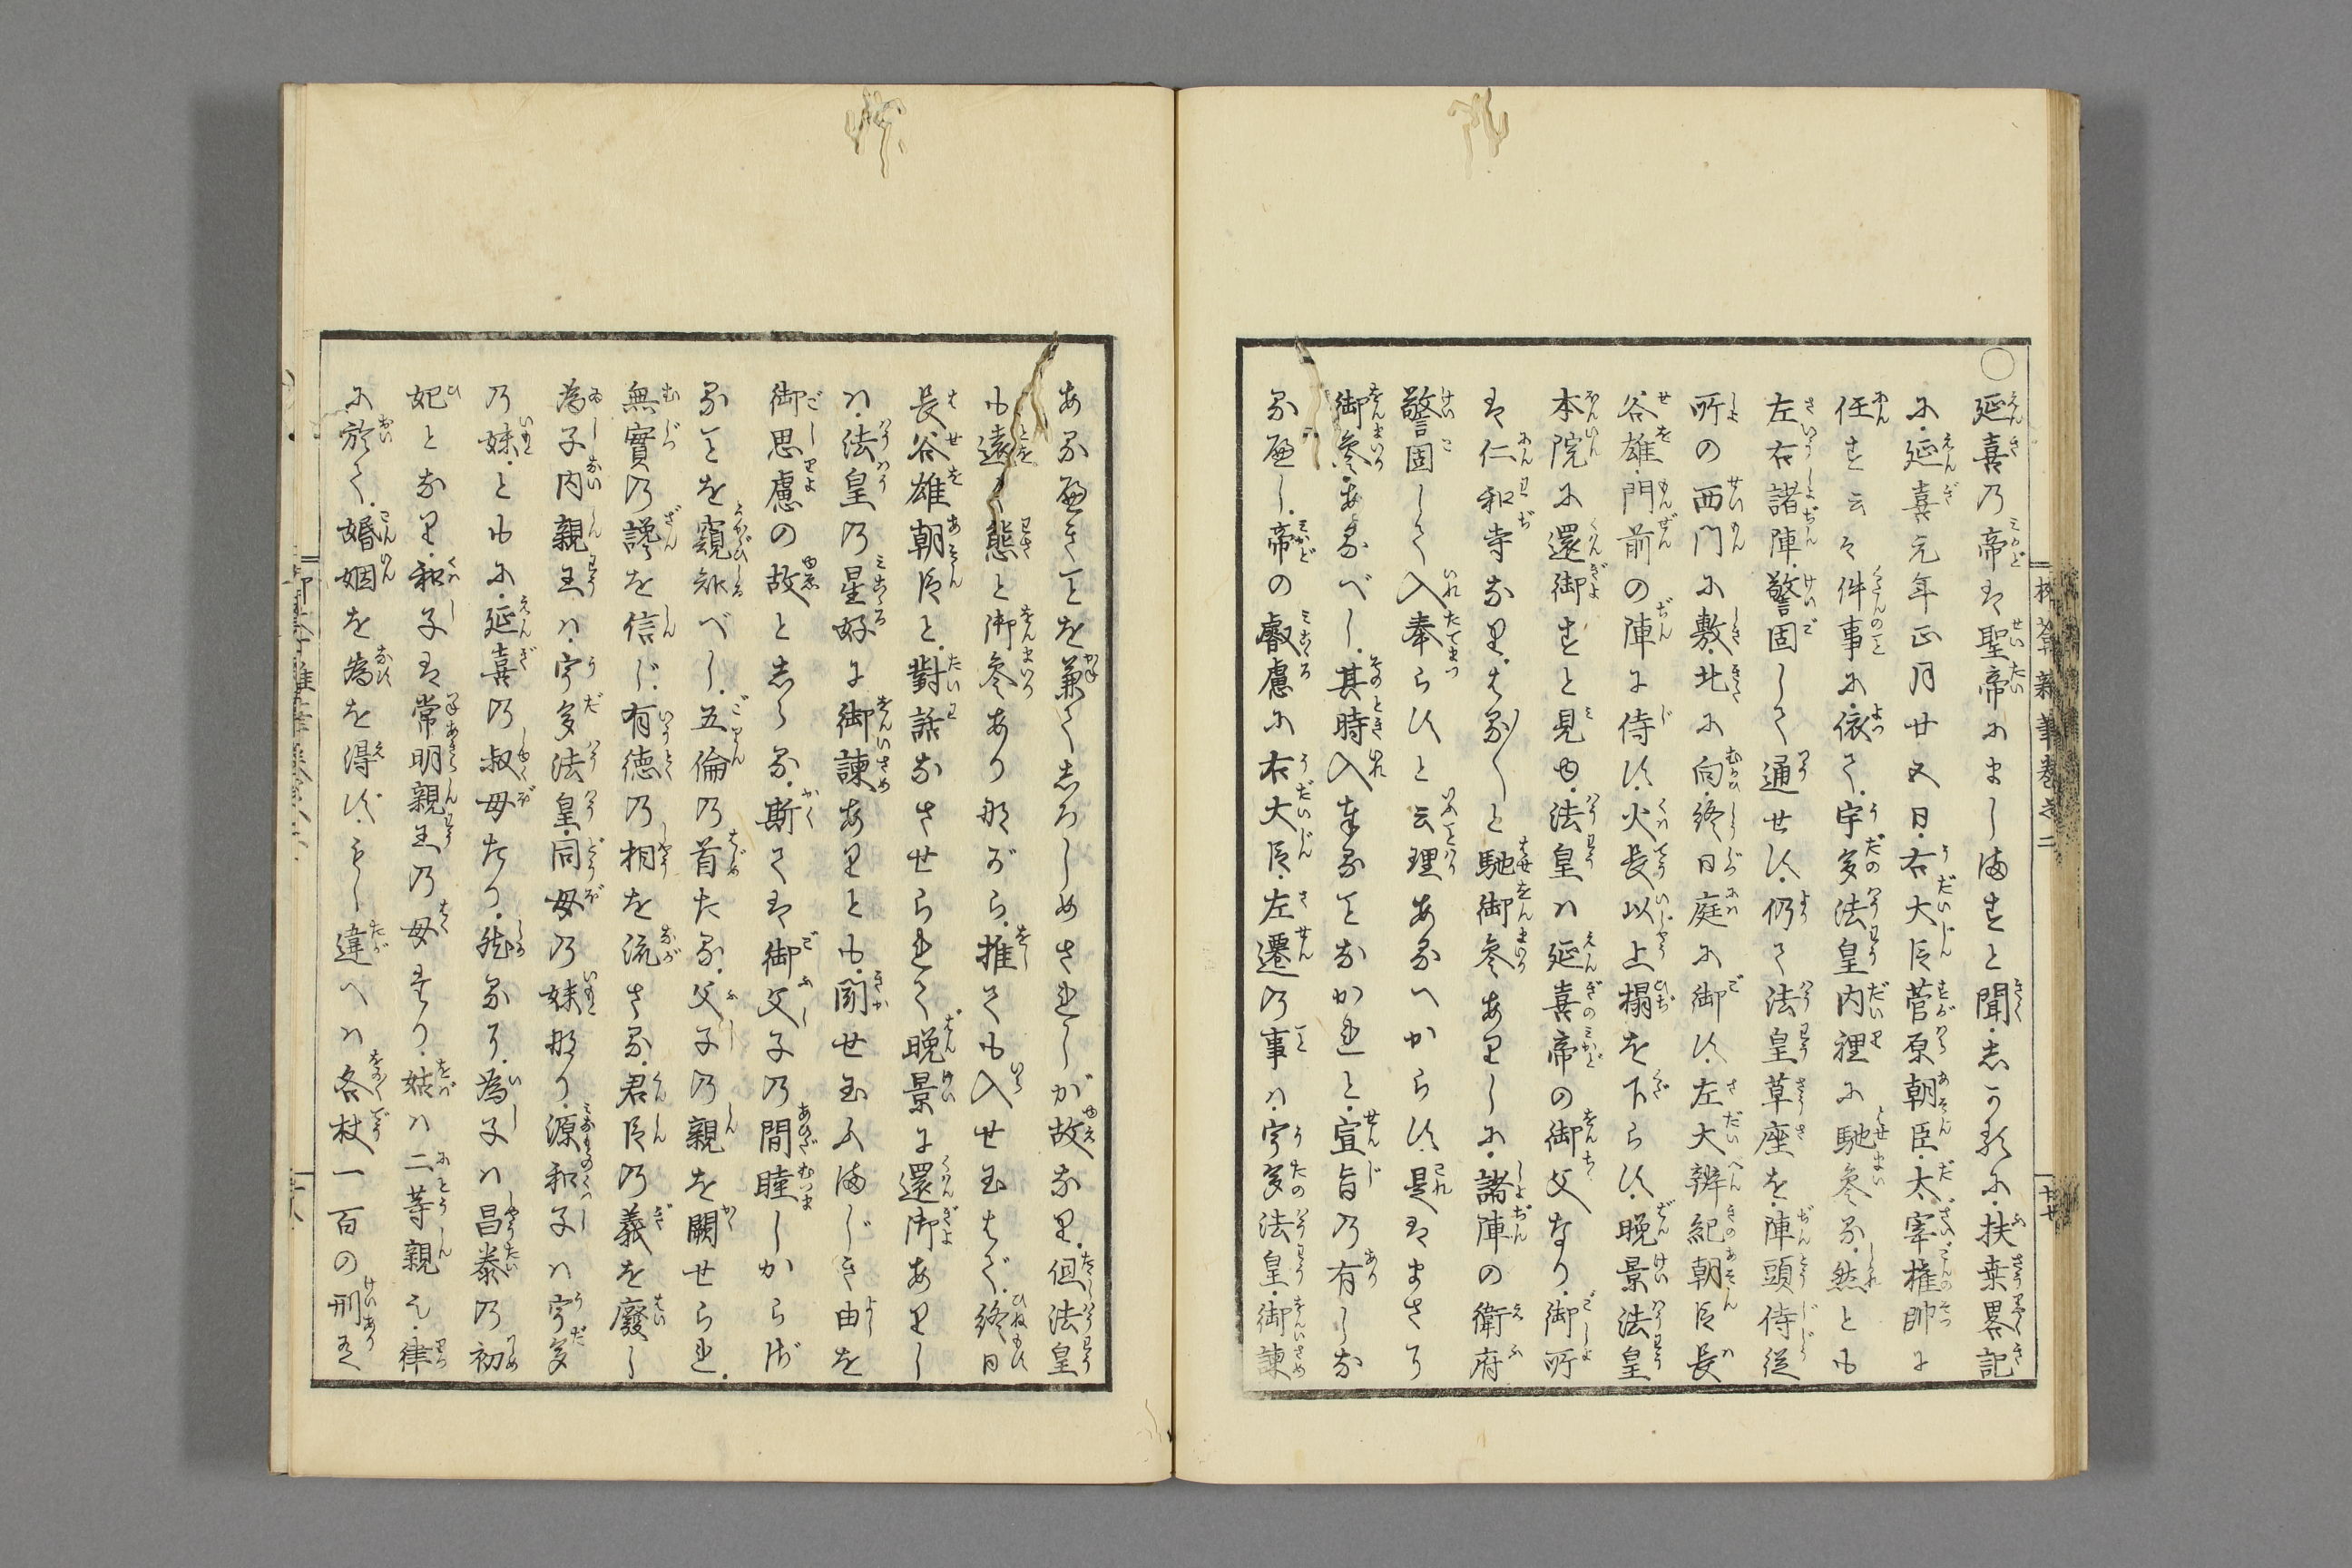 延喜乃帝は聖帝にましますと聞。しかるに。扶桒畧記
に。延喜元年正月廿五日。右大臣菅原朝臣。太宰權帥に
任ず云々件事に。依て。宇多法皇内裡に馳參る。然とも
左右諸陣。警固して通せず。仍て法皇草座を。陣頭侍從
所の西門に敷。北に向。終日庭に御す。左大辨紀朝臣長
谷雄。門前の陣に侍ず。火長以上榻を下らず。晩景法皇
本院に還御すと見ゆ。法皇ハ延喜帝の御父なり。御所
は仁和寺なり。はる〴〵と馳御參ありしに。諸陣の衛府
警固して入奉らずと云理あるへからず。是はまさり
御參あるべし。其時入奉ることなかれと。宣旨乃有しな
るべし。帝の叡慮に右大臣。左遷乃事ハ。宇多法皇。御諫
あるべきことを兼てしろしめされしが故なり。但法皇
も遠く態と御參ありながら。推ても入せ玉はで。終日
長谷雄朝臣と。對話なさせられて晩景に還御ありし
ハ。法皇乃星好に御諫ありとも。聞せ玉ふましき由を
御思慮の故としらる。斯ては御父子乃間睦しからず
ることを窺知べし。五倫乃首たる。父子乃親を闕せられ。
無實乃讒を信じ。有徳乃相を流さる。君臣乃義を廢し
為子内親王ハ。宇多法皇。同母乃妹なり。源和子ハ宇多
乃妹。ともに。延喜乃叔母たり。然るに。為子ハ昌泰乃初
妃となり。和子は常明親王乃母たり。姑ハ二等親也。律
に於て。婚姻を為を得ず。もし違へハ各杖一百の刑有